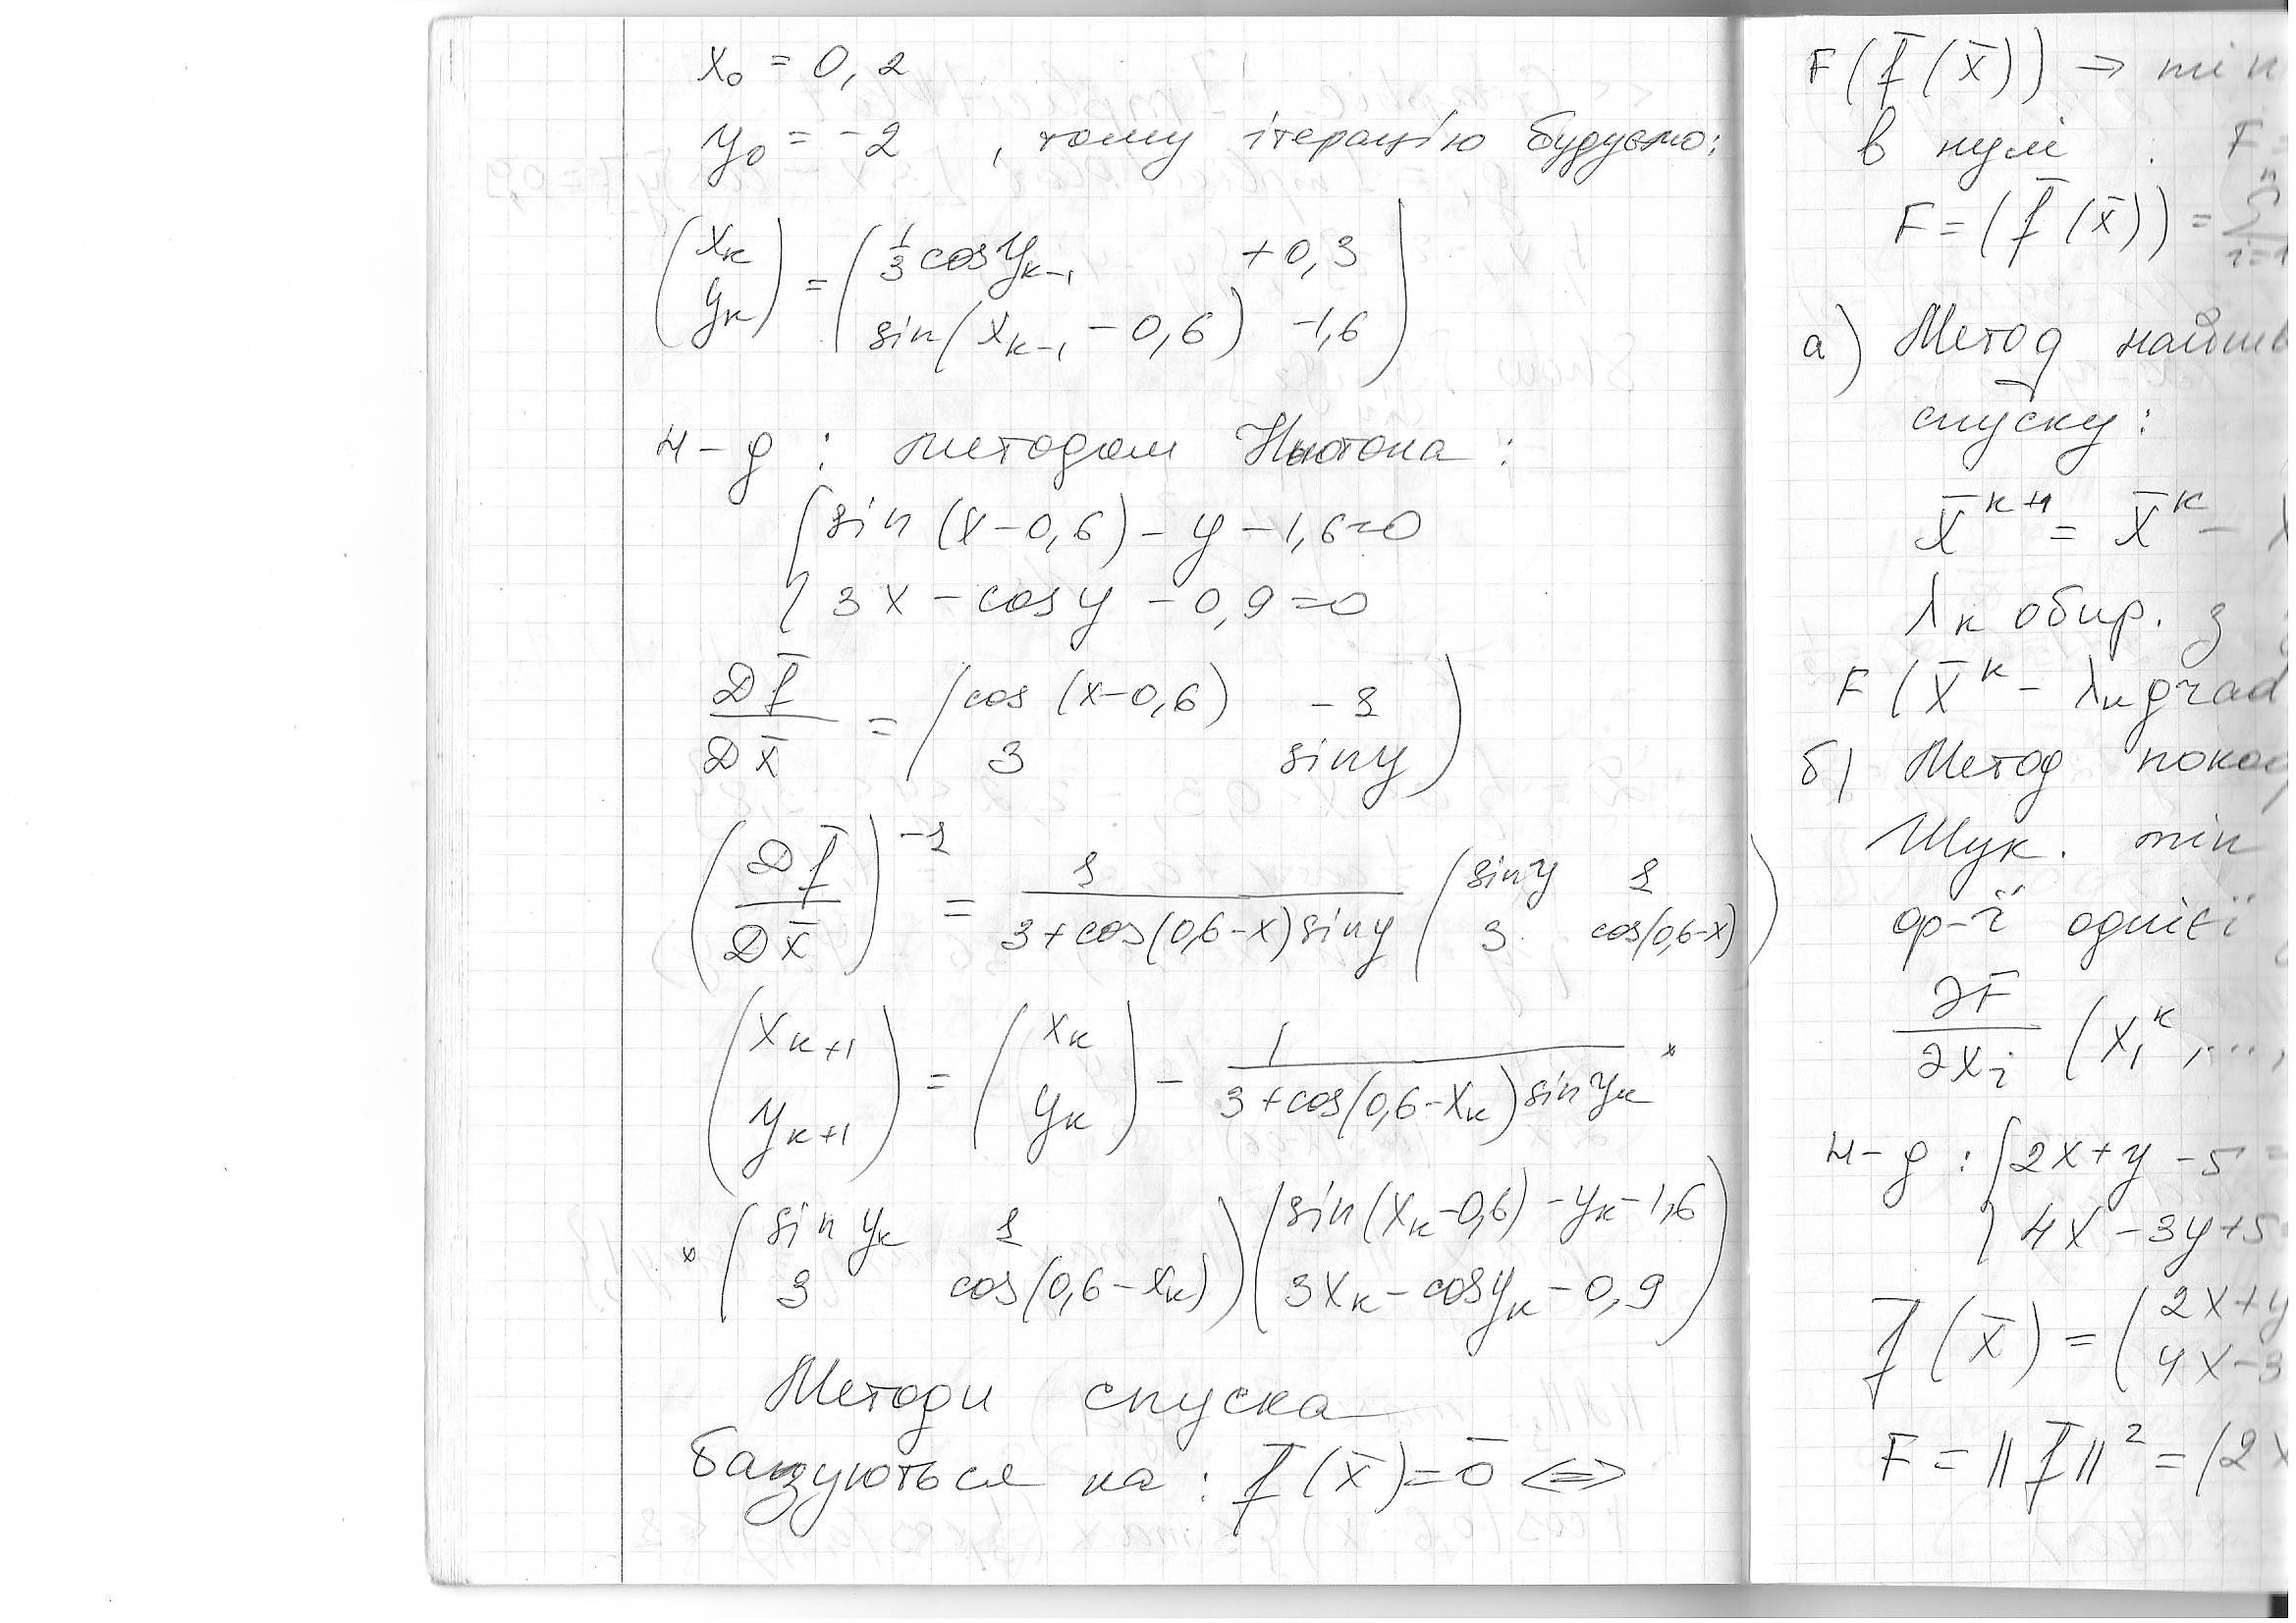 x₀ = 0,2
y₀ = -2 , тому ітерацію будуємо:
(xₖ yₖ) = (⅓ cos yₖ₋₁ + 0,3
sin(xₖ₋₁ - 0,6) - 1,6)
н-д : методом Ньютона :
{ sin (x - 0,6) - y - 1,6 = 0
3x - cos y - 0,9 = 0
Df̄/Dx̄ = (cos (x-0,6) -1
3 sin y)
(Df̄/Dx̄)⁻¹ = 1/(3+cos(0,6-x) sin y) (sin y 1
3 cos(0,6-x))
(xₖ₊₁ yₖ₊₁) = (xₖ yₖ) - 1/(3+cos(0,6-xₖ) sin yₖ) *
* (sin yₖ 1
3 cos(0,6-xₖ)) (sin(xₖ-0,6) - yₖ - 1,6
3xₖ - cos yₖ - 0,9)
Методи спуска
базуються на : f̄(x̄) = ō <=>
F(f̄(x̄)) → min
в нулі : F
F = (f̄(x̄)) = Σ i=1 n
а) Метод
спуску:
x̄ᵏ⁺¹ = x̄ᵏ -
λₖ обир. з
F(x̄ᵏ - λₖ grad
б) Метод
Шук. min
ф-ї однієї
∂F/∂xᵢ (x₁ᵏ, ...,
н-д : { 2x + y - 5 =
4x - 3y + 5
f̄(x̄) = (2x + y
4x - 3
F = ||f̄||² = (2x